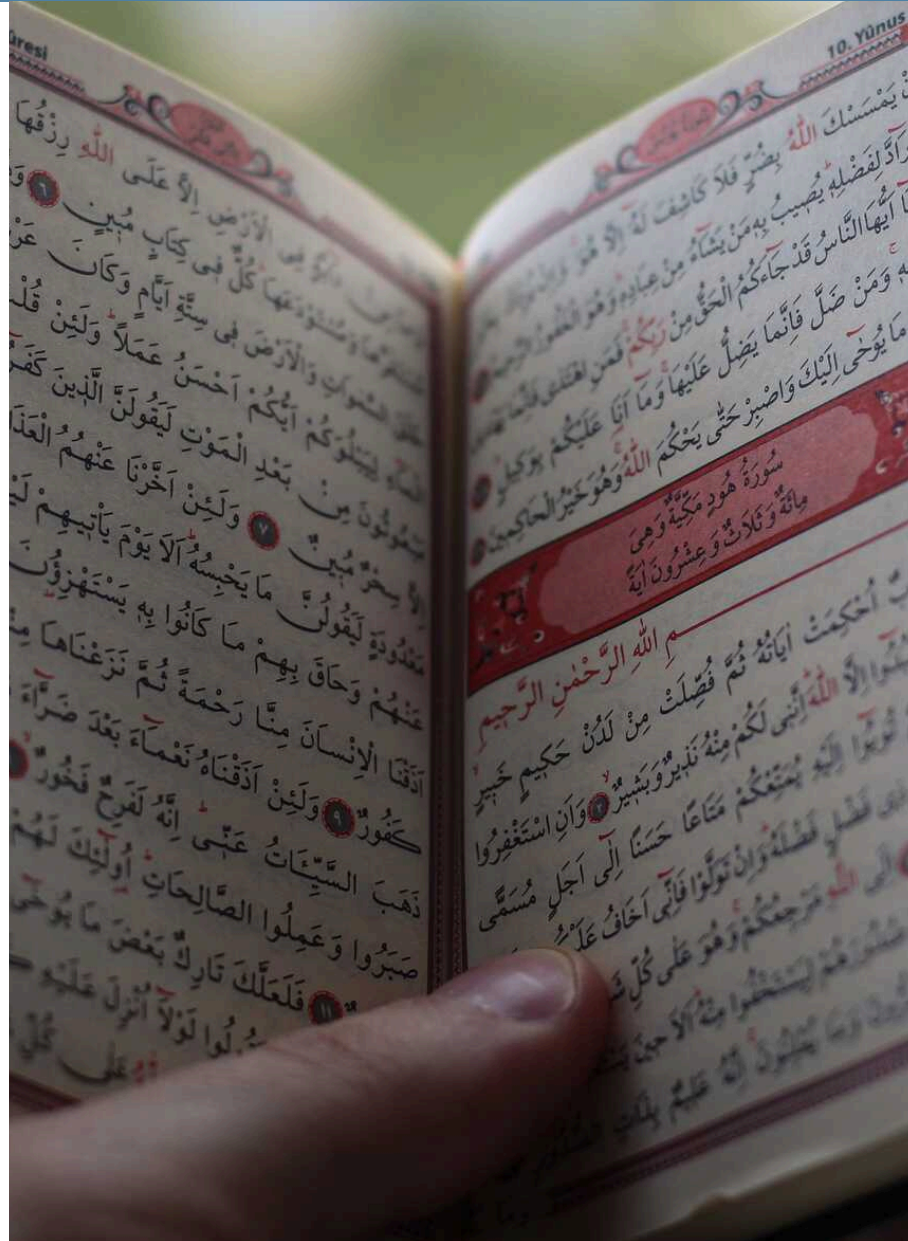 10. Yûnus
يَمْسَسْكَ اللّٰهُ بِضُرٍّ فَلَا كَاشِفَ لَهُٓ اِلَّا هُوَ وَاِنْ
رَٓادَّ لِفَضْلِهٖ يُصٖيبُ بِهٖ مَنْ يَشَٓاءُ مِنْ عِبَادِهٖ وَهُوَ الْغَفُورُ الرَّحٖيمُ
اَيُّهَا النَّاسُ قَدْ جَٓاءَكُمُ الْحَقُّ مِنْ رَبِّكُمْ فَمَنِ اهْتَدٰى فَاِنَّمَا يَهْتَدٖى
وَمَنْ ضَلَّ فَاِنَّمَا يَضِلُّ عَلَيْهَا وَمَٓا اَنَا عَلَيْكُمْ بِوَكٖيلٍ
مَا يُوحٰٓى اِلَيْكَ وَاصْبِرْ حَتّٰى يَحْكُمَ اللّٰهُ وَهُوَ خَيْرُ الْحَاكِمٖينَ
سُورَةُ هُودٍ مَكِّيَّةٌ وَهِيَ
مِائَةٌ وَثَلَاثٌ وَعِشْرُونَ اٰيَةً
مِ اللّٰهِ الرَّحْمٰنِ الرَّحٖيمِ
اُحْكِمَتْ اٰيَاتُهُ ثُمَّ فُصِّلَتْ مِنْ لَدُنْ حَكٖيمٍ خَبٖيرٍ
اِلَّا اللّٰهَ اِنَّنٖى لَكُمْ مِنْهُ نَذٖيرٌ وَبَشٖيرٌ ٢ وَاَنِ اسْتَغْفِرُوا
تُوبُٓوا اِلَيْهِ يُمَتِّعْكُمْ مَتَاعًا حَسَنًا اِلٰٓى اَجَلٍ مُسَمًّى
ذٖى فَضْلٍ فَضْلَهُ وَاِنْ تَوَلَّوْا فَاِنّٖٓى اَخَافُ
اِلَى اللّٰهِ مَرْجِعُكُمْ وَهُوَ عَلٰى كُلِّ
صُدُورَهُمْ لِيَسْتَخْفُوا مِنْهُ اَلَا حٖينَ
وَمَا يُعْلِنُونَ اِنَّهُ عَلٖيمٌ بِذَاتِ
ûresi
فِى الْاَرْضِ اِلَّا عَلَى اللّٰهِ رِزْقُهَا
وَمُسْتَوْدَعَهَا كُلٌّ فٖى كِتَابٍ مُبٖينٍ ٦
السَّمٰوَاتِ وَالْاَرْضَ فٖى سِتَّةِ اَيَّامٍ وَكَانَ
الْمَٓاءِ لِيَبْلُوَكُمْ اَيُّكُمْ اَحْسَنُ عَمَلًا وَلَئِنْ
مَبْعُوثُونَ مِنْ بَعْدِ الْمَوْتِ لَيَقُولَنَّ الَّذٖينَ
اِلَّا سِحْرٌ مُبٖينٌ ٧ وَلَئِنْ اَخَّرْنَا عَنْهُمُ
مَعْدُودَةٍ لَيَقُولُنَّ مَا يَحْبِسُهُ اَلَا يَوْمَ يَاْتٖيهِمْ
عَنْهُمْ وَحَاقَ بِهِمْ مَا كَانُوا بِهٖ يَسْتَهْزِؤُنَ
اَذَقْنَا الْاِنْسَانَ مِنَّا رَحْمَةً ثُمَّ نَزَعْنَاهَا
كَفُورٌ ٩ وَلَئِنْ اَذَقْنَاهُ نَعْمَٓاءَ بَعْدَ ضَرَّٓاءَ
ذَهَبَ السَّيِّـَٔاتُ عَنّٖى اِنَّهُ لَفَرِحٌ فَخُورٌ
صَبَرُوا وَعَمِلُوا الصَّالِحَاتِ اُو۬لٰٓئِكَ لَهُمْ
١١ فَلَعَلَّكَ تَارِكٌ بَعْضَ مَا يُوحٰٓى
لَوْلَٓا اُنْزِلَ عَلَيْهِ
عَلٰى كُلِّ